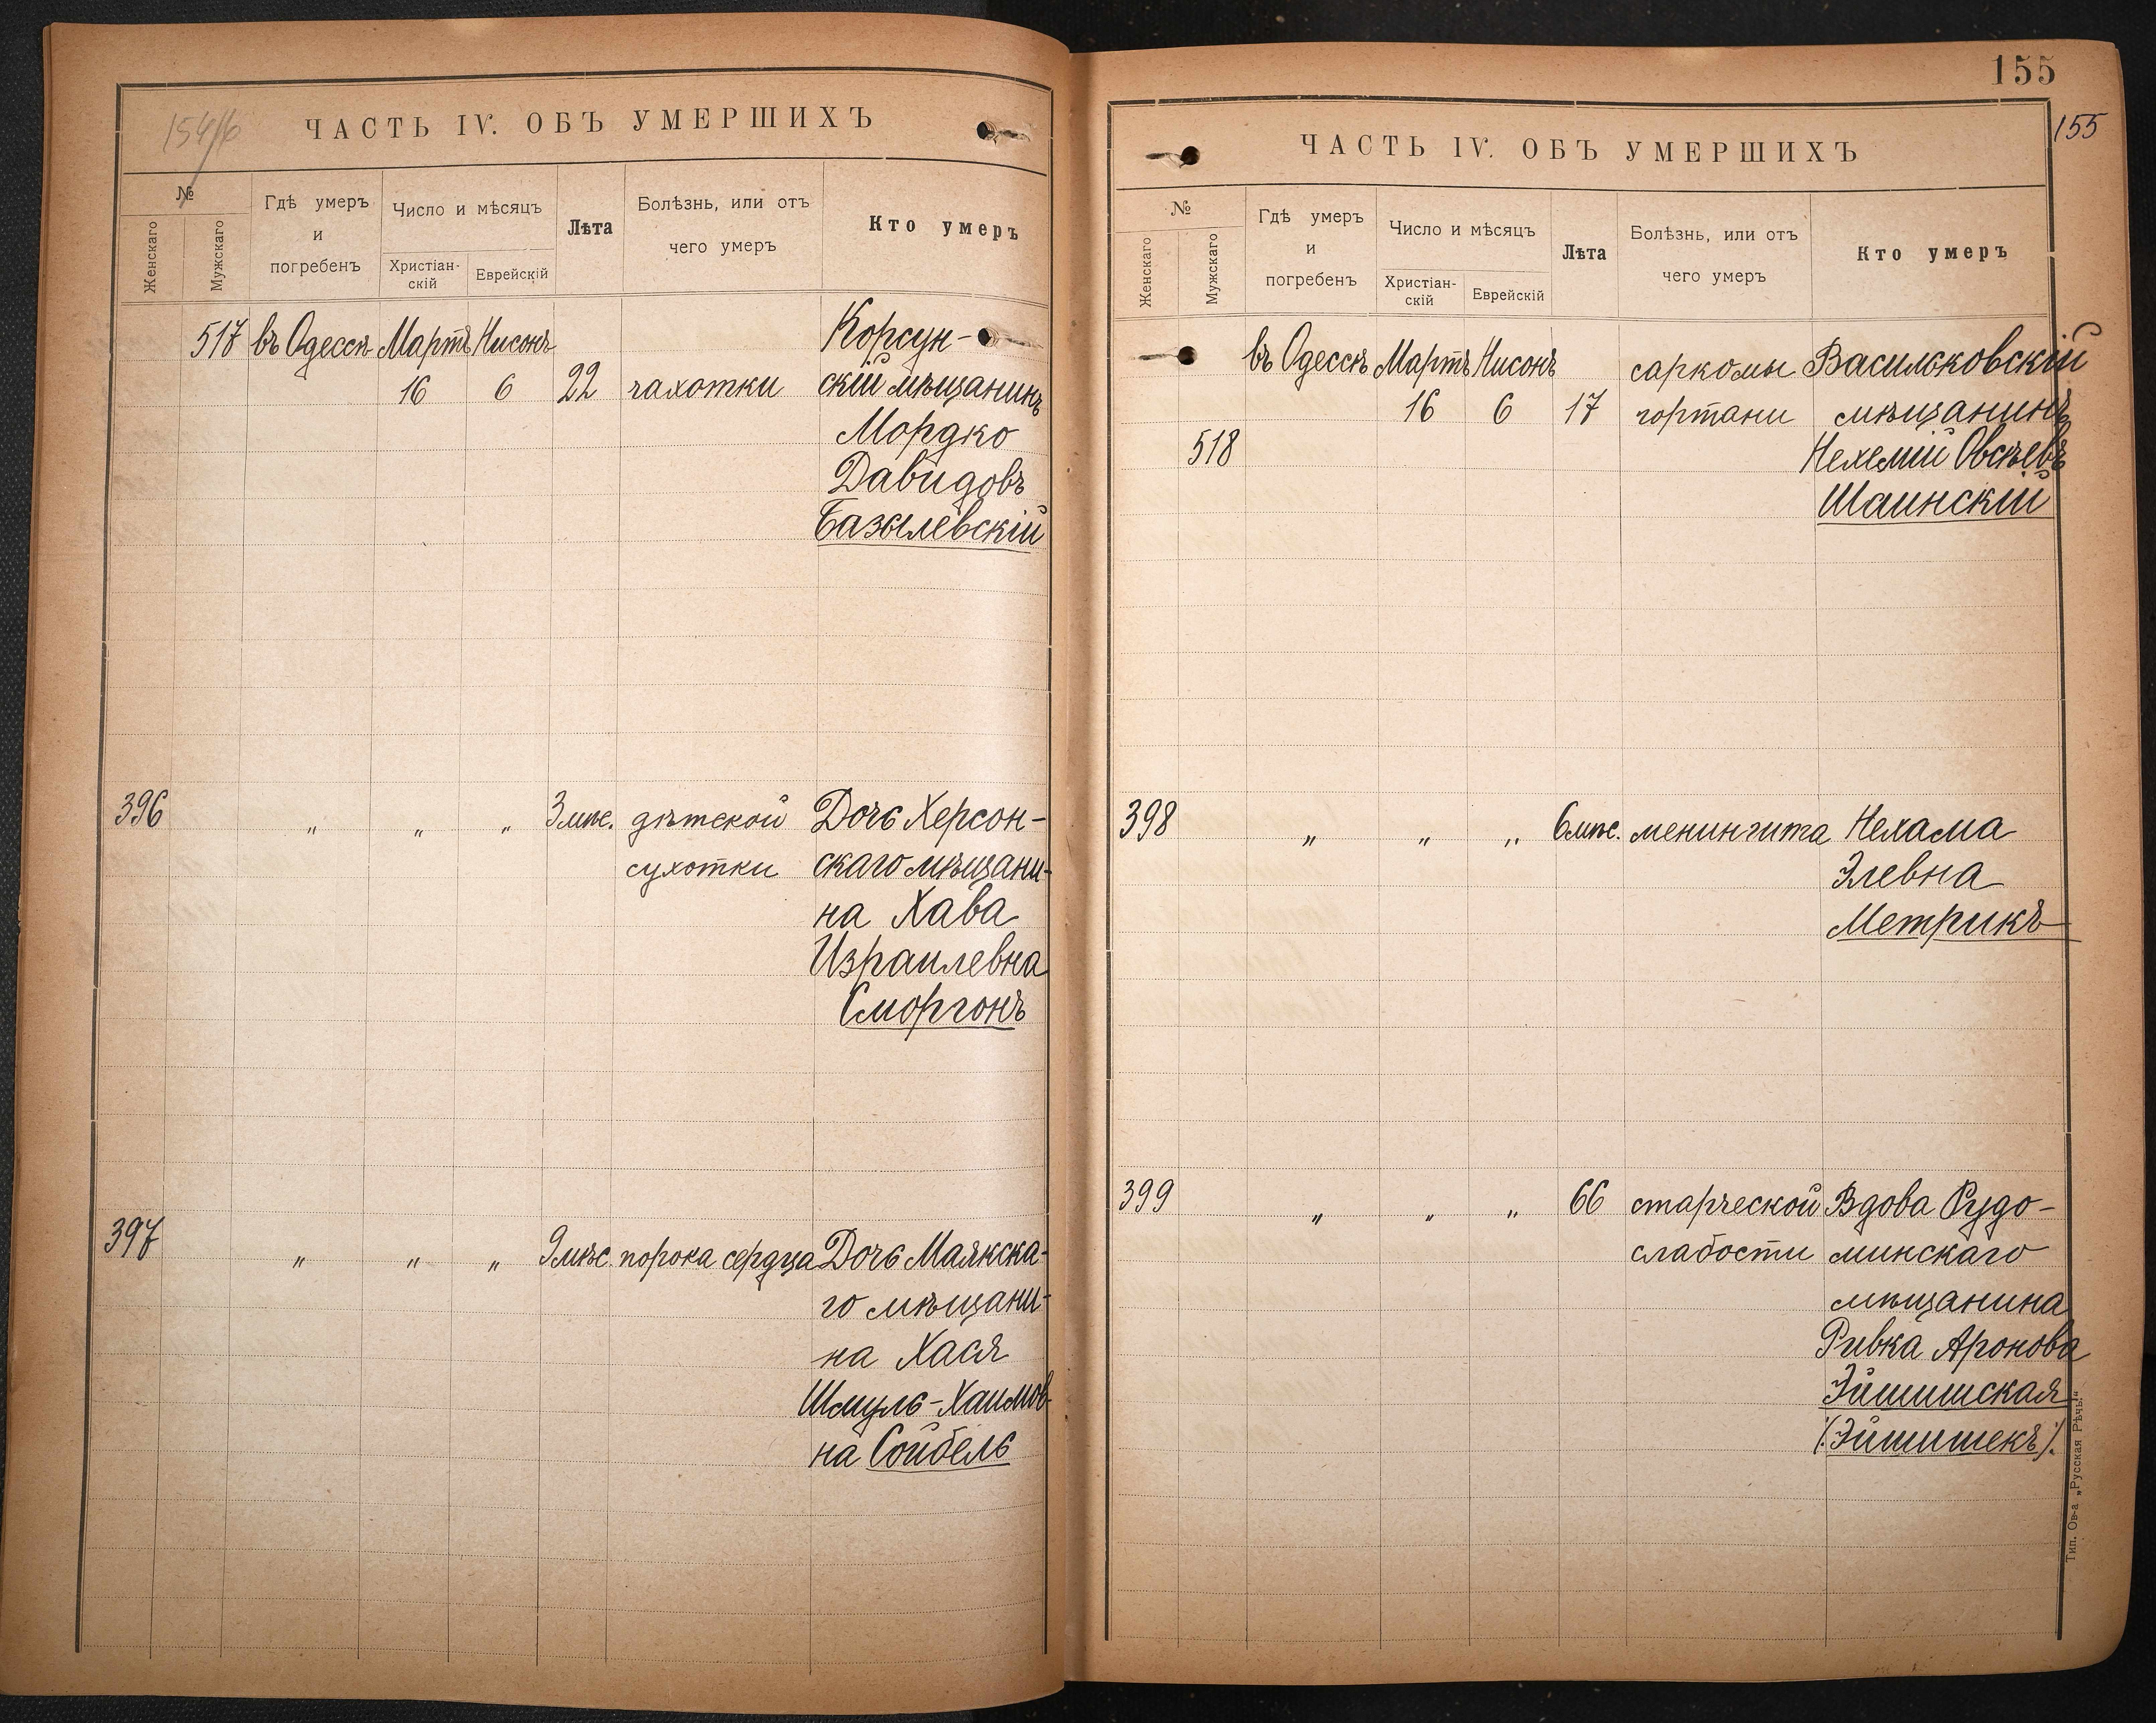 154/б
ЧАСТЬ IV. ОБЪ УМЕРШИХЪ
№
Женскаго
Мужскаго
Гдѣ умеръ
и
погребенъ
Число и мѣсяцъ
Христіан-
скій
Еврейскій
Лѣта
Болѣзнь, или отъ
чего умеръ
Кто умеръ
517 въ Одессѣ Мартъ Нисонъ Корсун-
16 6 22 чахотки скій мѣщанинъ
Мордко
Давидовъ
Базылевскій
396 " " " 3 мѣс. дѣтской Дочь Херсон-
сухотки скаго мѣщани-
на Хава
Израилевна
Сморгонъ
397 " " " 9 мѣс. порока сердца Дочь Маякска-
го мѣщани-
на Хася
Шмуль-Хаимов-
на Сойбель
155
155
ЧАСТЬ IV. ОБЪ УМЕРШИХЪ
№
Женскаго
Мужскаго
Гдѣ умеръ
и
погребенъ
Число и мѣсяцъ
Христіан-
скій
Еврейскій
Лѣта
Болѣзнь, или отъ
чего умеръ
Кто умеръ
въ Одессѣ Мартъ Нисонъ саркомы Васильковскій
16 6 17 гортани мѣщанинъ
518 Нехемій Овсѣевъ
Шаинскій
398 " " " 6 мѣс. менингита Нехама
Элевна
Метрикъ
399 " " " 66 старческой Вдова Рудо-
слабости минскаго
мѣщанина
Ривка Аронова
Эйшишская
/:Эйшишекъ:/.
Тип. Ов-а „Русская Рѣчь“